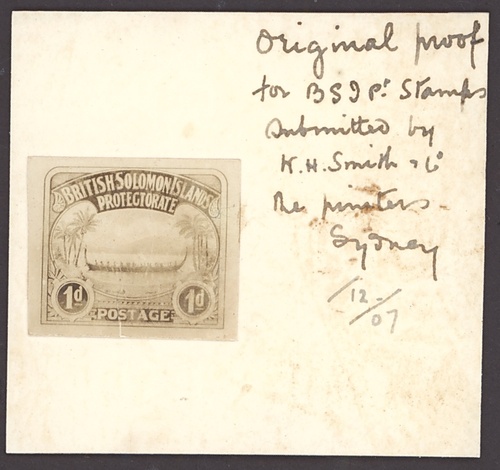 Original proof
for BSI Pt. Stamps
submitted by
W.H. Smith & Co
the printers
Sydney
12/07
BRITISH SOLOMON ISLANDS
PROTECTORATE
1d 1d
POSTAGE